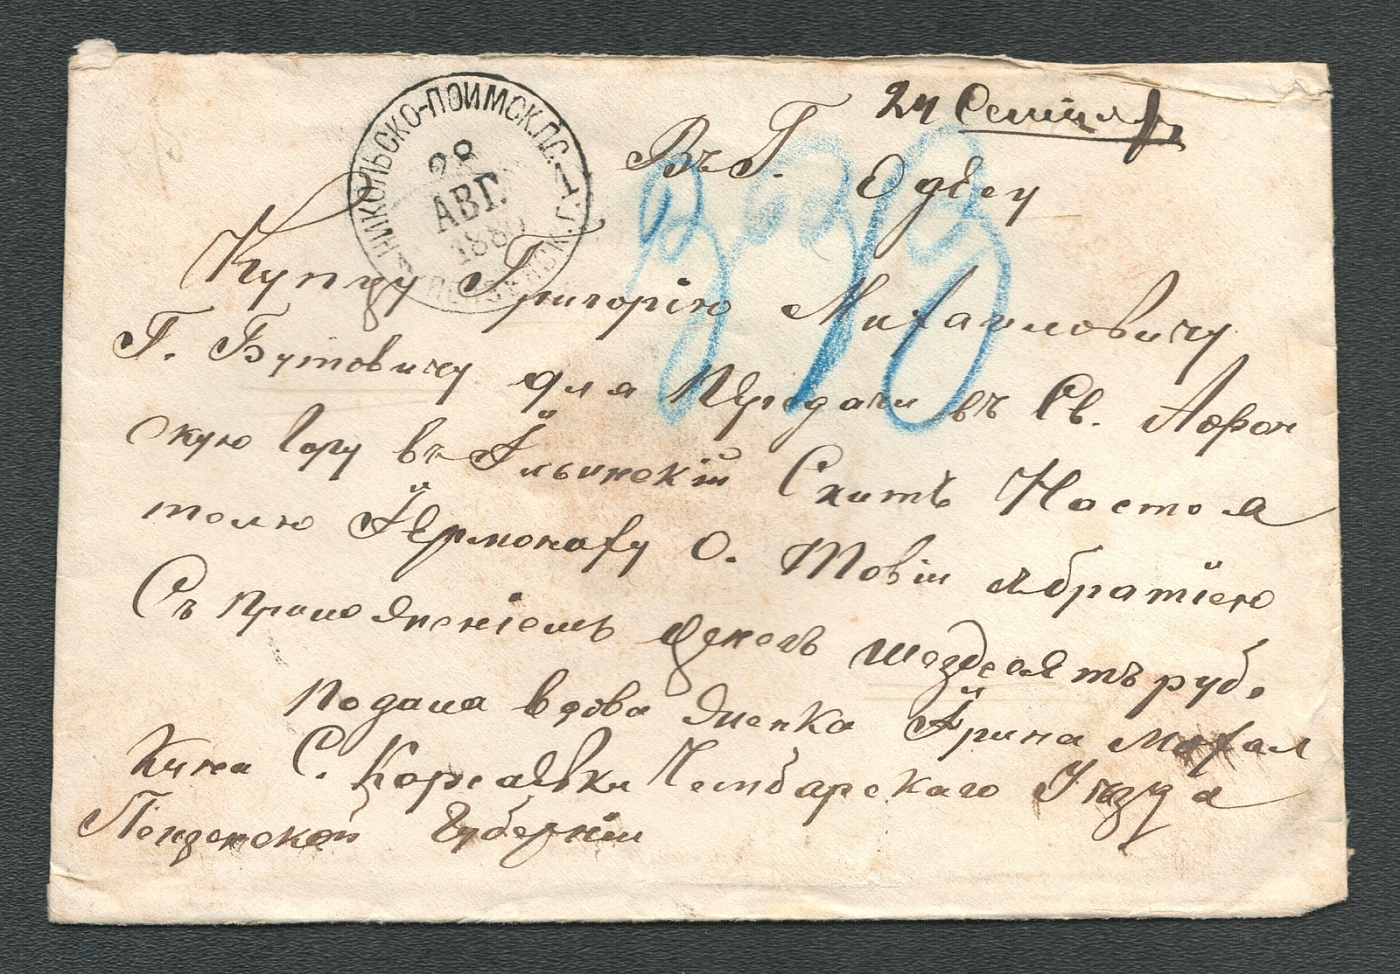 НИКОЛЬСКО-ПОИМСК.П.С. 1
28
АВГ.
188
24 Сентяб
Въ Г. Одѣсу
Купцу Григорію Михаиловичу
Г. Бутовичу для Передачи въ Св. Афон
скую Гору въ Ильинскій Скитъ Настоя
телю Іермонаху О. Товіи з братіею
Съ приложеніемъ денегъ шездесятъ руб.
Подала вдова Ирина
С. Чембарскаго Уезда
Пензенской Губерніи